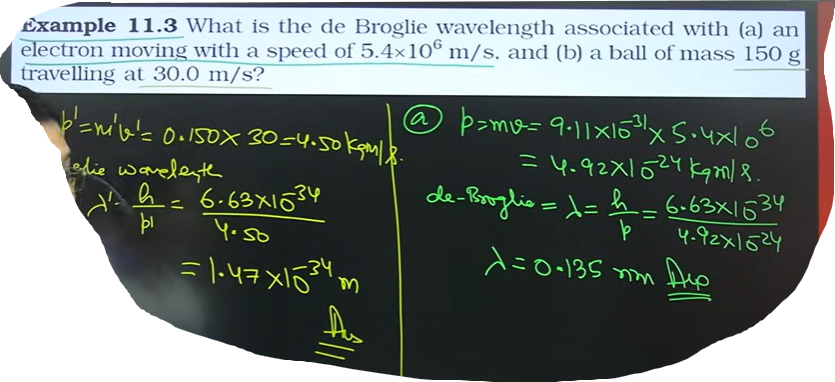 Example 11.3 What is the de Broglie wavelength associated with (a) an
electron moving with a speed of 5.4×10⁶ m/s, and (b) a ball of mass 150 g
travelling at 30.0 m/s?
p'=m'v'= 0.150×30=4.50 kgm/s.
wavelength
λ'= h/p' = 6.63×10⁻³⁴/4.50
= 1.47×10⁻³⁴ m
Ans
(a) p=mv= 9.11×10⁻³¹×5.4×10⁶
= 4.92×10⁻²⁴ kgm/s.
de-Broglie = λ= h/p = 6.63×10⁻³⁴/4.92×10⁻²⁴
λ=0.135 nm Ans